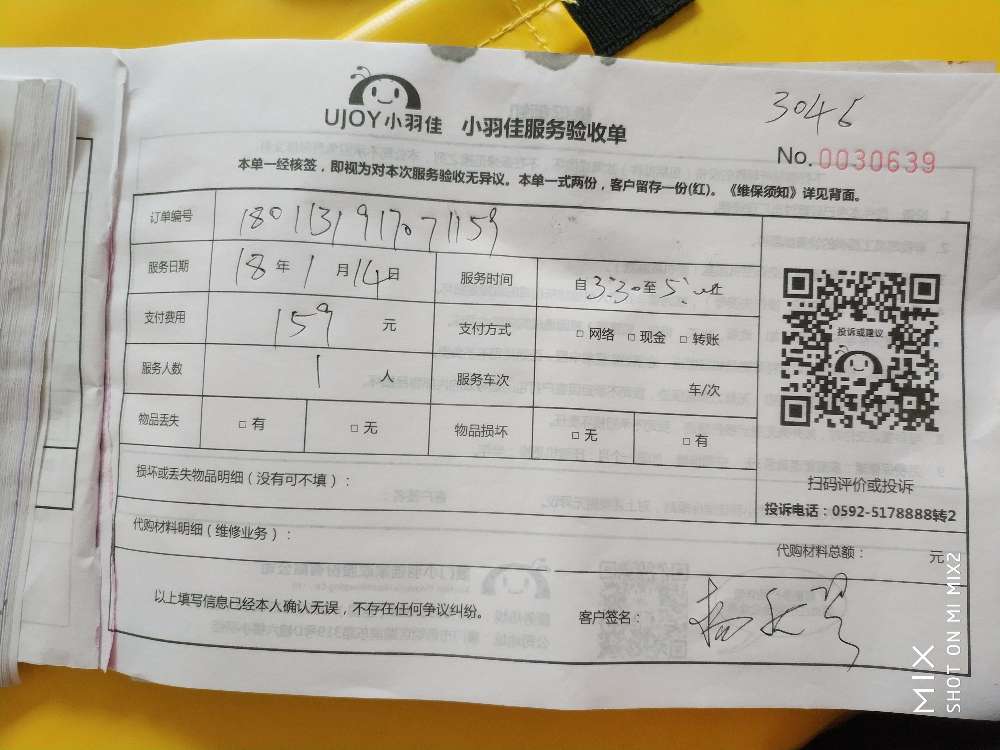 3046
UJOY小羽佳 小羽佳服务验收单
No. 0030639
本单一经核签，即视为对本次服务验收无异议。本单一式两份，客户留存一份(红)。《维保须知》详见背面。
订单编号 1801131917071159
服务日期 18 年 1 月 14 日 服务时间 自 3:30 至 5:
支付费用 159 元 支付方式 □ 网络 □ 现金 □ 转账
投诉或建议
服务人数 1 人 服务车次 车/次
物品丢失 □ 有 □ 无 物品损坏 □ 无 □ 有
损坏或丢失物品明细（没有可不填）：
扫码评价或投诉
投诉电话：0592-5178888转2
代购材料明细（维修业务）：
代购材料总额： 元
以上填写信息已经本人确认无误，不存在任何争议纠纷。
客户签名：
MIX
SHOT ON MI MIX2